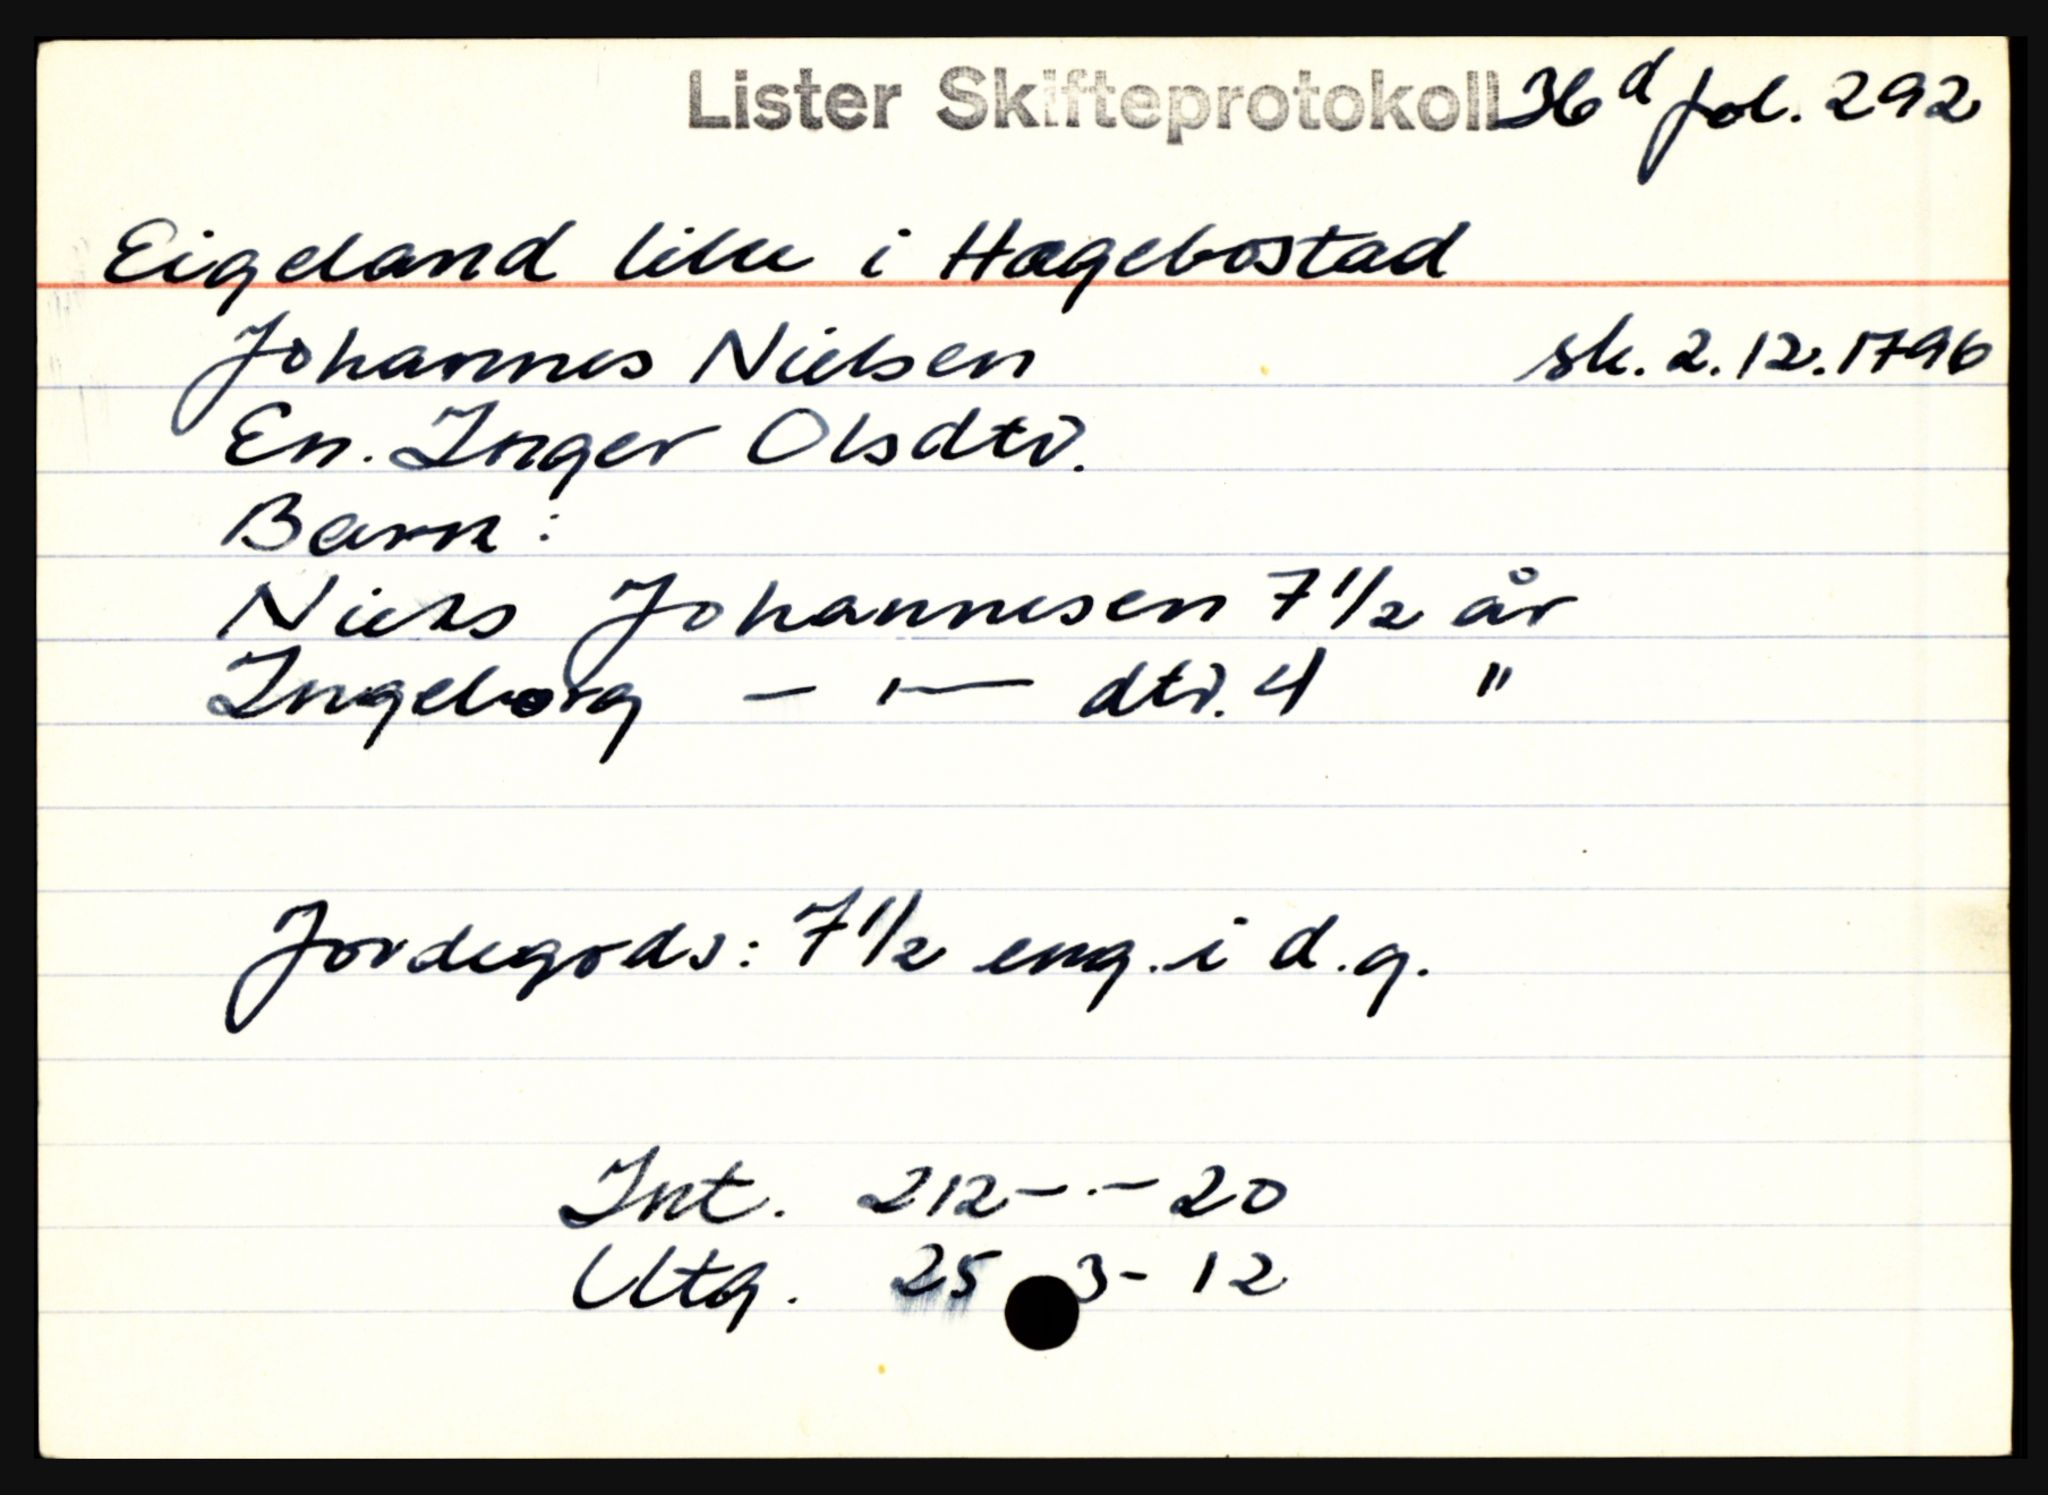 Lister Skifteprotokoll 36 d fol. 292
Eigeland lille i Hægebostad
Johannes Nielsen sk. 2.12.1796
En. Inger Olsdtr.
Barn:
Niels Johannesen 7 1/2 år
Ingeborg — ı — dtr. 4 "
Jordegods: 7 1/2 eng. i d.g.
Int. 212 - . - 20
Utg. 25 3 - 12